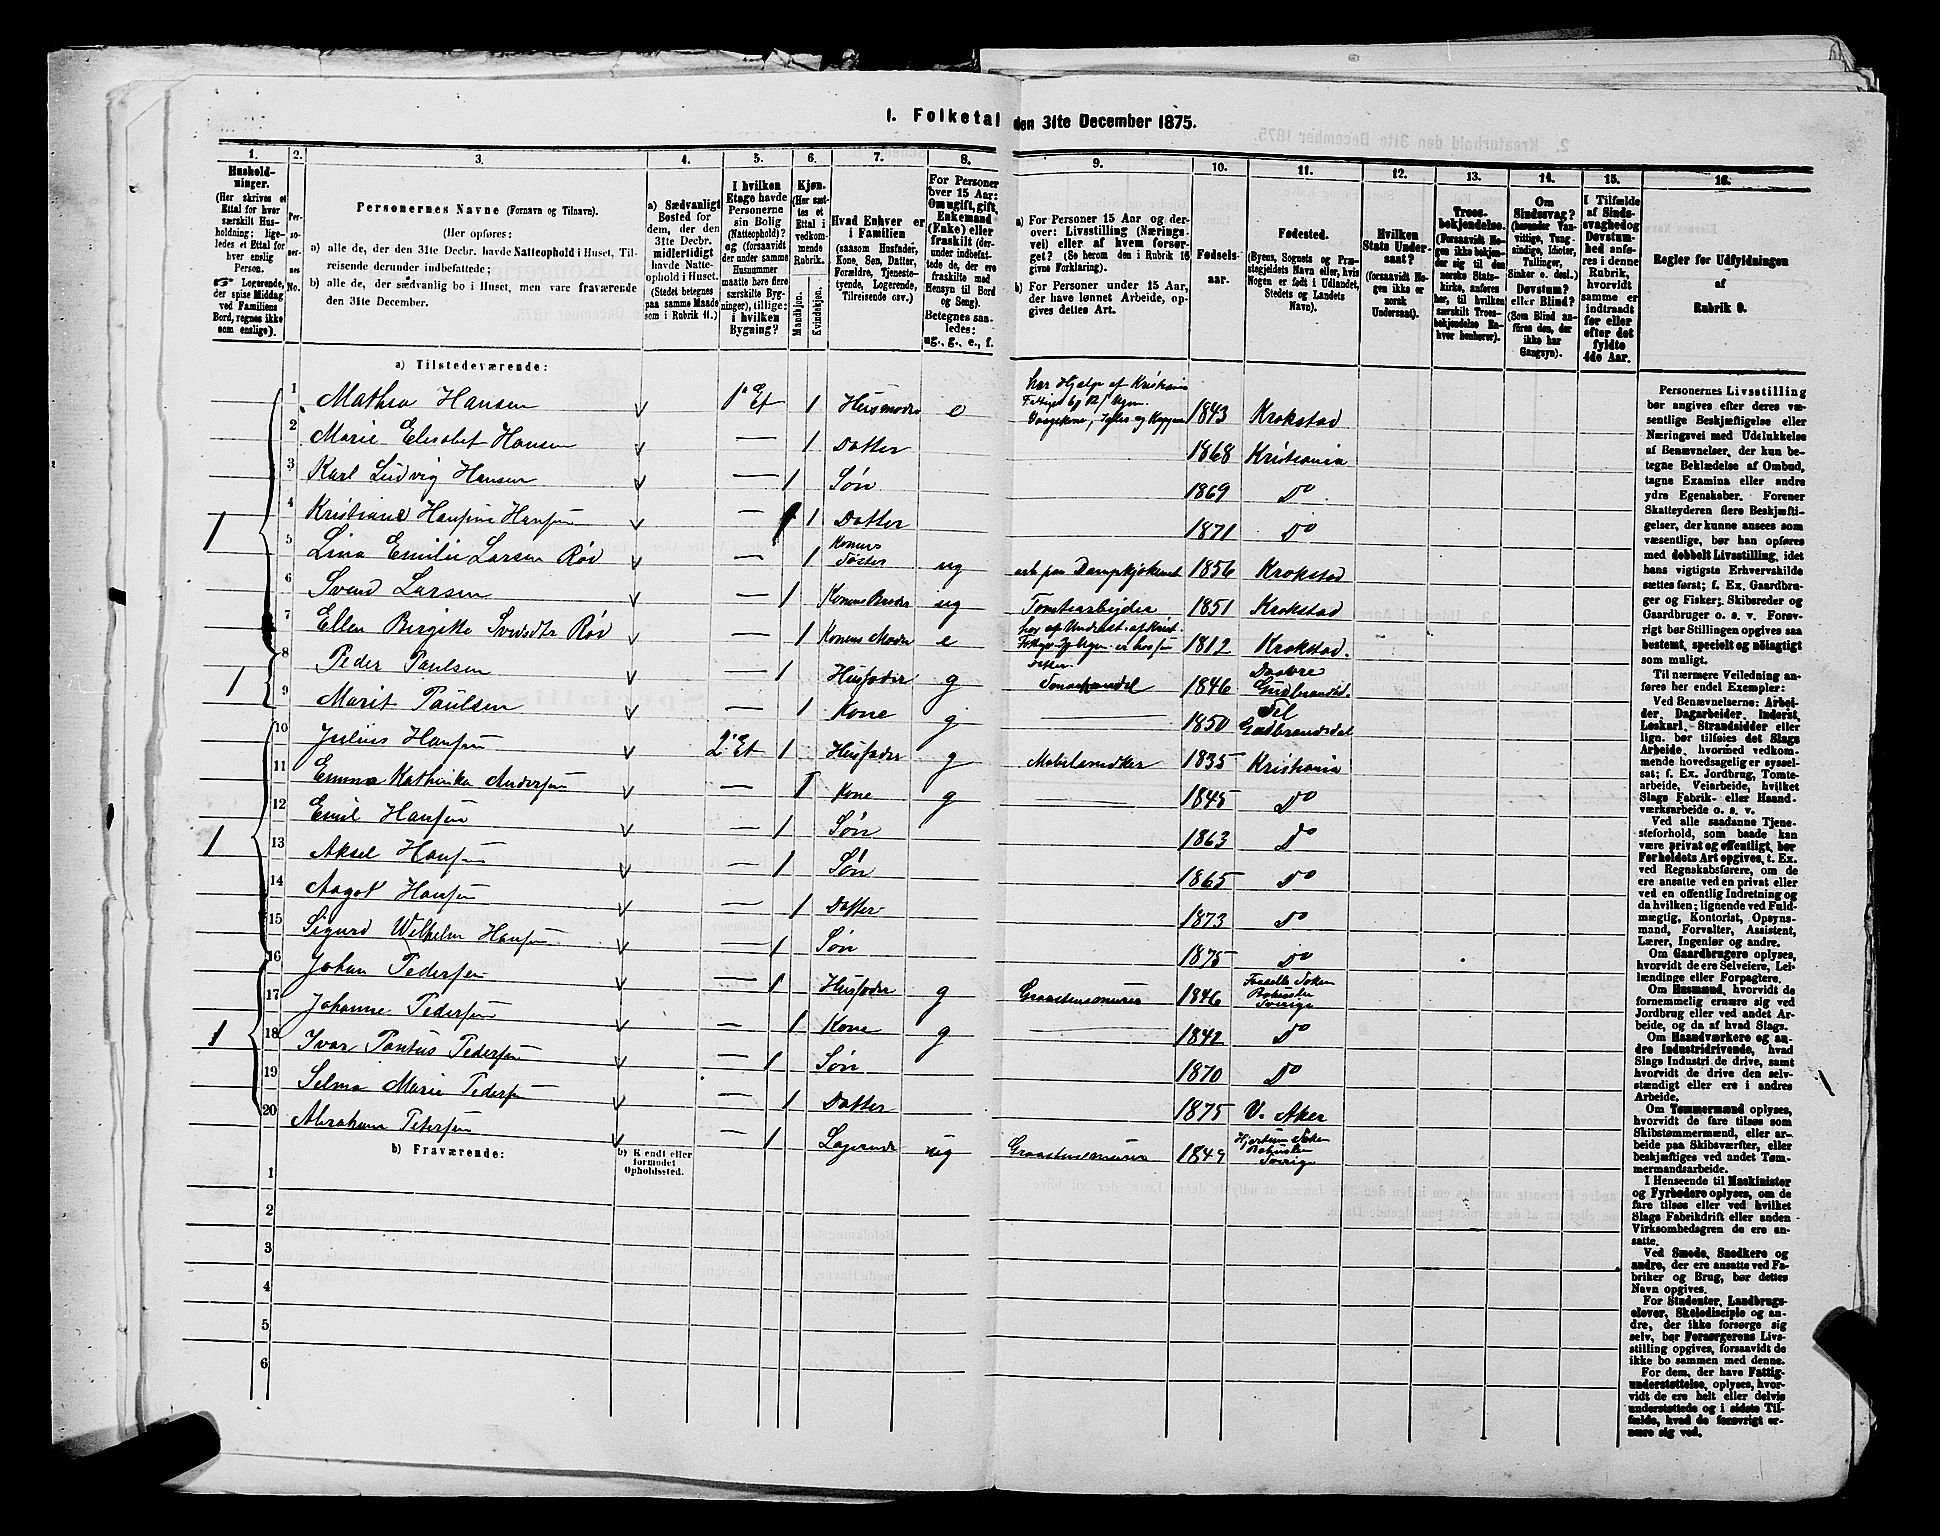 I. Folketal den 31te December 1875.
1. 2. 3. 4. 5. 6. 7. 8. 9. 10. 11. 12. 13. 14. 15. 16.
Hushold-
ninger.
(Her skrives et
Ettal for hver
særskilt Hus-
holdning; lige-
ledes et Ettal for
hver enslig
Person.
Logerende,
der spise Middag
ved Familiens
Bord, regnes ikke
som enslige).
Per-
so-
ner-
nes
No.
Personernes Navne (Fornavn og Tilnavn).
(Her opføres:
a) alle de, der den 31te Decbr. havde Natteophold i Huset, Til-
reisende derunder indbefattede;
b) alle de, der sædvanlig bo i Huset, men vare fraværende
den 31te December.
a) Sædvanligt
Bosted for
dem, der den
31te Decbr.
midlertidigt
havde Natte-
ophold i Huset.
(Stedet betegnes
paa samme Maade
som i Rubrik 11.)
I hvilken
Etage havde
Personerne
sin Bolig
(Natteophold)?
og (forsaavidt
der under samme
Husnummer
maatte høre flere
særskilte Byg-
ninger), tillige:
i hvilken
Bygning?
Kjøn.
(Her sæt-
tes et
Ettal i
vedkom-
mende
Rubrik.
Mandkjøn.
Kvindekjøn.
Hvad Enhver er
i Familien
(saasom Husfader,
Kone, Søn, Datter,
Forældre, Tjeneste-
tyende, Logerende,
Tilreisende osv.)
For Personer
over 15 Aar:
Om ugift, gift,
Enkemand
(Enke) eller
fraskilt (der-
under indbefat-
tede de, der ere
fraskilte med
Hensyn til Bord
og Seng).
Betegnes saa-
ledes:
ug., g., e., f.
a) For Personer 15 Aar og der-
over: Livsstilling (Nærings-
vei) eller af hvem forsør-
get? (Se herom den i Rubrik 16
givne Forklaring).
b) For Personer under 15 Aar,
der have lønnet Arbeide, op-
gives dettes Art.
Fødsels-
aar.
Fødested.
(Byens, Sognets og Præ-
stegjeldets Navn eller, hvis
Nogen er født i Udlandet,
Stedets og Landets
Navn).
Hvilken
Stats Under-
saat?
(forsaavidt No-
gen ikke er
norsk
Undersaat).
Troes-
bekjendelse.
(Forsaavidt No-
gen ikke bekjen-
der sig til den
norske Stats-
kirke, anføres
her, til hvilken
særskilt Troes-
bekjendelse En-
hver henhører).
Om
Sindssvag?
(herunder Van-
vittige, Tung-
sindige, Idioter,
Tullinger,
Sinker o. desl.)
Døvstum?
eller Blind?
(Som Blind an-
føres den, der
ikke har
Gangsyn).
I Tilfælde
af Sinds-
svaghed og
Døvstum-
hed anfø-
res i denne
Rubrik,
hvorvidt
samme er
indtraadt
før eller
efter det
fyldte
4de Aar.
Regler for Udfyldningen
af
Rubrik 9.
a) Tilstedeværende:
1 Mathea Hansen v 1ste Et 1 Husmoder e har Hjælp af Kristiania 1843 Krokstad
2 Marie Elisabet Hansen v — 1 Datter 1868 Kristiania
3 Karl Ludvig Hansen v — 1 Søn 1869 Do
4 Kristiane Hansine Hansen v — 1 Datter 1871 Do
5 Lina Emilie Larsen Rød v — 1 Konens Søster ug arb paa Dampkjøkenet 1856 Krokstad
6 Svend Larsen v — 1 Konens Broder ug Tomtearbejder 1851 Krokstad
7 Ellen Birgitte Svedsdtr Rød v — 1 Konens Moder e 1812 Krokstad.
8 Peder Paulsen 1 Husfader g 1846 Gudbrandsd.
9 Marit Paulsen v 1 Kone g — 1850 Gudbrandsdal
10 Julius Hansen v 2 Et 1 Husfader g Møbelsnedker 1835 Kristiania
11 Emma Kathinka Andersen v — 1 Kone g — 1845 Do
12 Emil Hansen v — 1 Søn 1863 Do
13 Aksel Hansen v — 1 Søn 1865 Do
14 Aagot Hansen v — 1 Datter 1873 Do
15 Sigurd Wilhelm Hansen v — 1 Søn 1875 Do
16 Johan Pedersen v — 1 Husfader g Graastensmurer 1846 Sverige
17 Johanne Pedersen v — 1 Kone g — 1842 Do
18 Ivar Pontus Pedersen v — 1 Søn 1870 Do
19 Selma Marie Pedersen v — 1 Datter 1875 V. Aker
20 Abraham Petersen v — 1 Logerende ug Graastensmurer 1849 Sverige
b) Fraværende:
b) Kjendt eller
formodet
Opholdssted.
1
2
3
4
5
6
Personernes Livsstilling
bør angives efter deres væ-
sentlige Beskjæftigelse eller
Næringsvei med Udelukkelse
af Benævnelser, der kun be-
tegne Beklædelse af Ombud,
tagne Examina eller andre
ydre Egenskaber. Forener
Skatteyderen flere Beskjæfti-
gelser, der kunne ansees som
væsentlige, bør han opføres
med dobbelt Livsstilling, idet
hans vigtigste Erhvervskilde
sættes først; f. Ex. Gaardbru-
ger og Fisker; Skibsreder og
Gaardbruger o. s. v. Forøv-
rigt bør Stillingen opgives saa
bestemt, specielt og nøiagtigt
som muligt.
Til nærmere Veiledning an-
føres her endel Exempler:
Ved Benævnelserne: Arbei-
der, Dagarbeider, Inderst,
Løskarl, Strandsidder eller
lign. bør tilføies det Slags
Arbeide, hvormed vedkom-
mende hovedsagelig er syssel-
sat; f. Ex. Jordbrug, Tomte-
arbeide, Veiarbeide, hvilket
Slags Fabrik- eller Haand-
værksarbeide o. s. v.
Ved alle saadanne Tjene-
steforhold, som baade kan
være privat og offentligt, bør
Forholdets Art opgives, t. Ex.
ved Regnskabsførere, om de
ere ansatte ved en privat eller
ved en offentlig Indretning og
da hvilken; lignende ved Fuld-
mægtig, Kontorist, Opsyns-
mand, Forvalter, Assistent,
Lærer, Ingeniør og andre.
Om Gaardbrugere oplyses,
hvorvidt de ere Selveiere, Lei-
lændinge eller Forpagtere.
Om Husmænd, hvorvidt de
fornemmelig ernære sig ved
Jordbrug eller ved andet Ar-
beide, og da af hvad Slags.
Om Haandværkere og an-
dre Industridrivende, hvad
Slags Industri de drive, samt
hvorvidt de drive den selv-
stændigt eller ere i andres
Arbeide.
Om Tømmermænd oplyses,
hvorvidt de fare tilsøs som
Skibstømmermænd, eller ar-
beide paa Skibsværfter, eller
beskjæftiges ved andet Tøm-
mermandsarbeide.
I Henseende til Maskinister
og Fyrbødere oplyses, om de
fare tilsøs eller ved hvilket
Slags Fabrikdrift eller anden
Virksomhedsgren de ere an-
satte.
Ved Smede, Snedkere og
andre, der ere ansatte ved Fa-
briker og Brug, bør dettes
Navn opgives.
For Studenter, Landbrugs-
elever, Skoledisciple og an-
dre, der ikke forsørge sig
selv, bør Forsørgerens Livs-
stilling opgives, forsaavidt de
ikke bo sammen med denne.
For dem, der have Fattig-
understøttelse, oplyses, hvor-
vidt de ere helt eller delvis
understøttede og i sidste Til-
fælde, hvad de forøvrigt er-
nære sig ved.